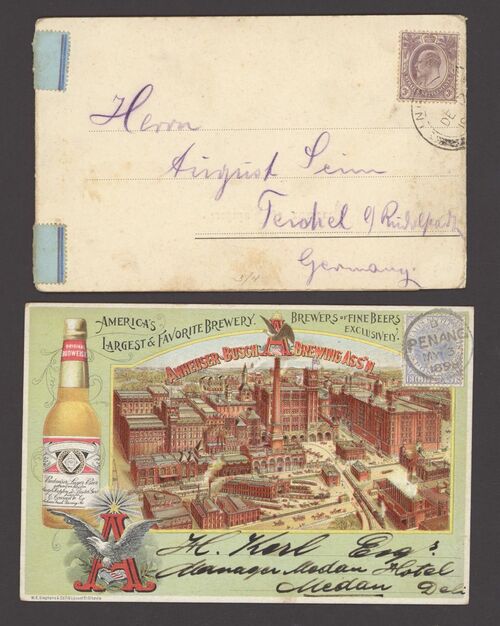 Herrn
August Seim
Teichel b/ Rudolstadt
Germany.
3/4
AMERICA'S
LARGEST & FAVORITE BREWERY.
BREWERS OF FINE BEERS
EXCLUSIVELY.
ANHEUSER-BUSCH BREWING ASS'N.
ORIGINAL
BUDWEISER
PENANG
MY 3
H. Kerl Esqr
Manager Medan Hotel
Medan Deli